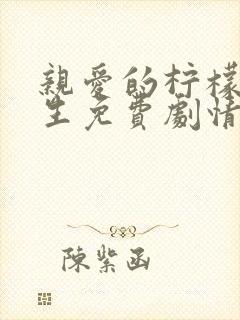 親愛的柠檬
生免費劇情
陳紫函